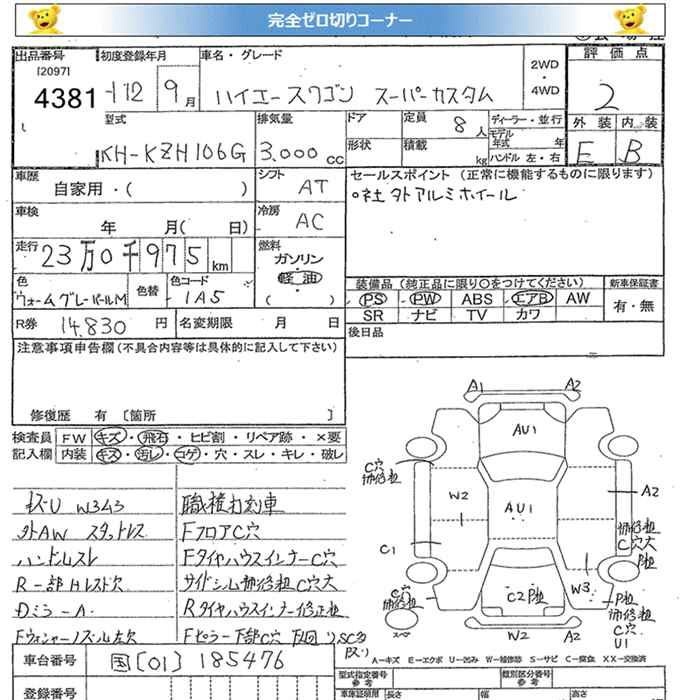 完全ゼロ切りコーナー
出品番号 初度登録年月 車名・グレード 2WD ・ 4WD 評価点
[2097]
4381 -112 9月 ハイエースワゴン スーパーカスタム 2
型式 排気量 ドア 定員 8人 ディーラー・並行 外装 内装
KH-KZH106G 3.000cc 形状 積載 kg モデル年式 年 ハンドル 左・右 E B
車歴 シフト セールスポイント (正常に機能するものに限ります)
自家用・( ) AT 社外アルミホイール
車検 冷房
年 月( ) AC
走行 燃料
23万0千975km ガソリン・軽油 ( )
色 色替 色コード 装備品 (純正品に限り○をつけてください) 新車保証書
ウォームグレーパールM 1A5 PS PW ABS エアB AW 有・無
SR ナビ TV カワ
R券 14.830円 名変期限 月 日 後日品
注意事項申告欄 (不具合内容等は具体的に記入して下さい)
修復歴 有 〔箇所 〕
検査員 FW キズ・飛石・ヒビ割・リペア跡・×要
記入欄 内装 キズ・汚レ・コゲ・穴・スレ・キレ・破レ
キズU W3A3 職権打刻車
外AW スタッドレス FフロアC穴
ハンドルスレ FタイヤハウスインナーC穴
R一部Hレスト欠 サイドシル補修粗C穴大
DミラーA Rタイヤハウスインナー修正粗
Fウォッシャーノズル左欠 Fピラー下部C穴 下回りSC多
A1 A2
AU1
C穴
補修粗
W2 AU1 A2
C1
補修粗
C穴大
P粗
C穴
補修粗 C2P粗 W3
P粗
補修粗
C穴
U1
スペ
W2 A2
A-キズ E-エクボ U-凹み W-補修跡 S-サビ C-腐食 XX-交換済
車台番号 国[01]185476 型式指定番号 参考 類別区分番号 参考
登録番号 車庫証明用 参考 長さ 幅 高さ